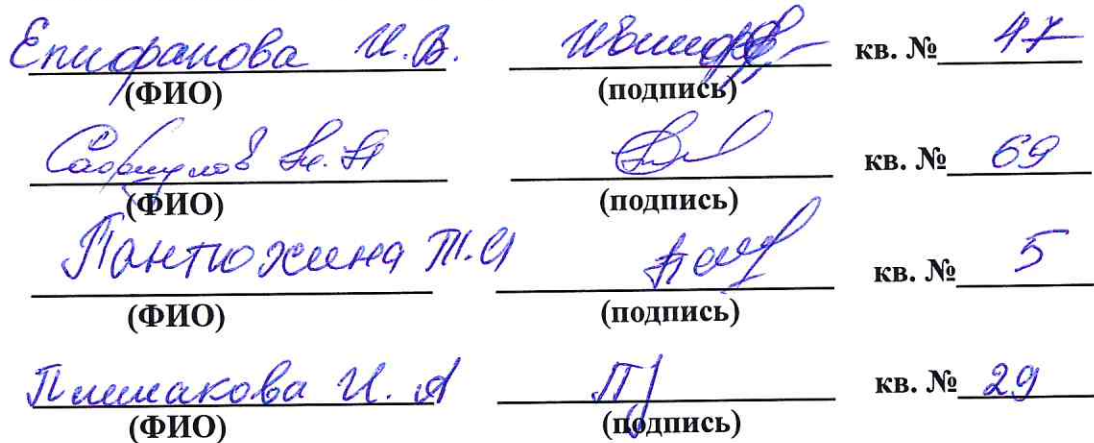 Епифанова И.В. кв. № 47
(ФИО) (подпись)
кв. № 69
(ФИО) (подпись)
Пантюхина Т.И кв. № 5
(ФИО) (подпись)
Пишакова И. А кв. № 29
(ФИО) (подпись)